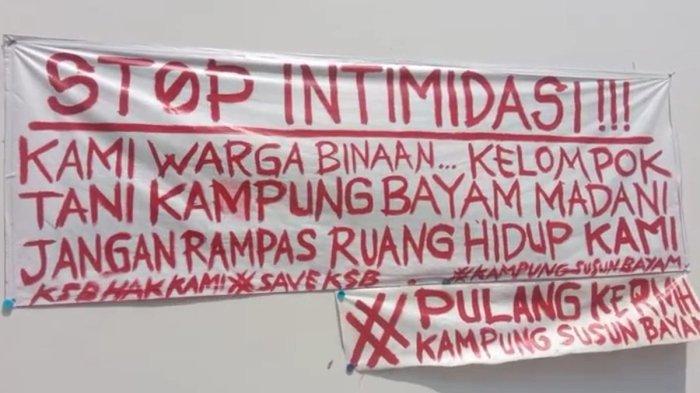 STOP INTIMIDASI!!!
KAMI WARGA BINAAN... KELOMPOK
TANI KAMPUNG BAYAM MADANI
JANGAN RAMPAS RUANG HIDUP KAMI
KSB HAK KAMI # SAVE KSB #KAMPUNG SUSUN BAYAM
# PULANG KE RMH
KAMPUNG SUSUN BAYAM